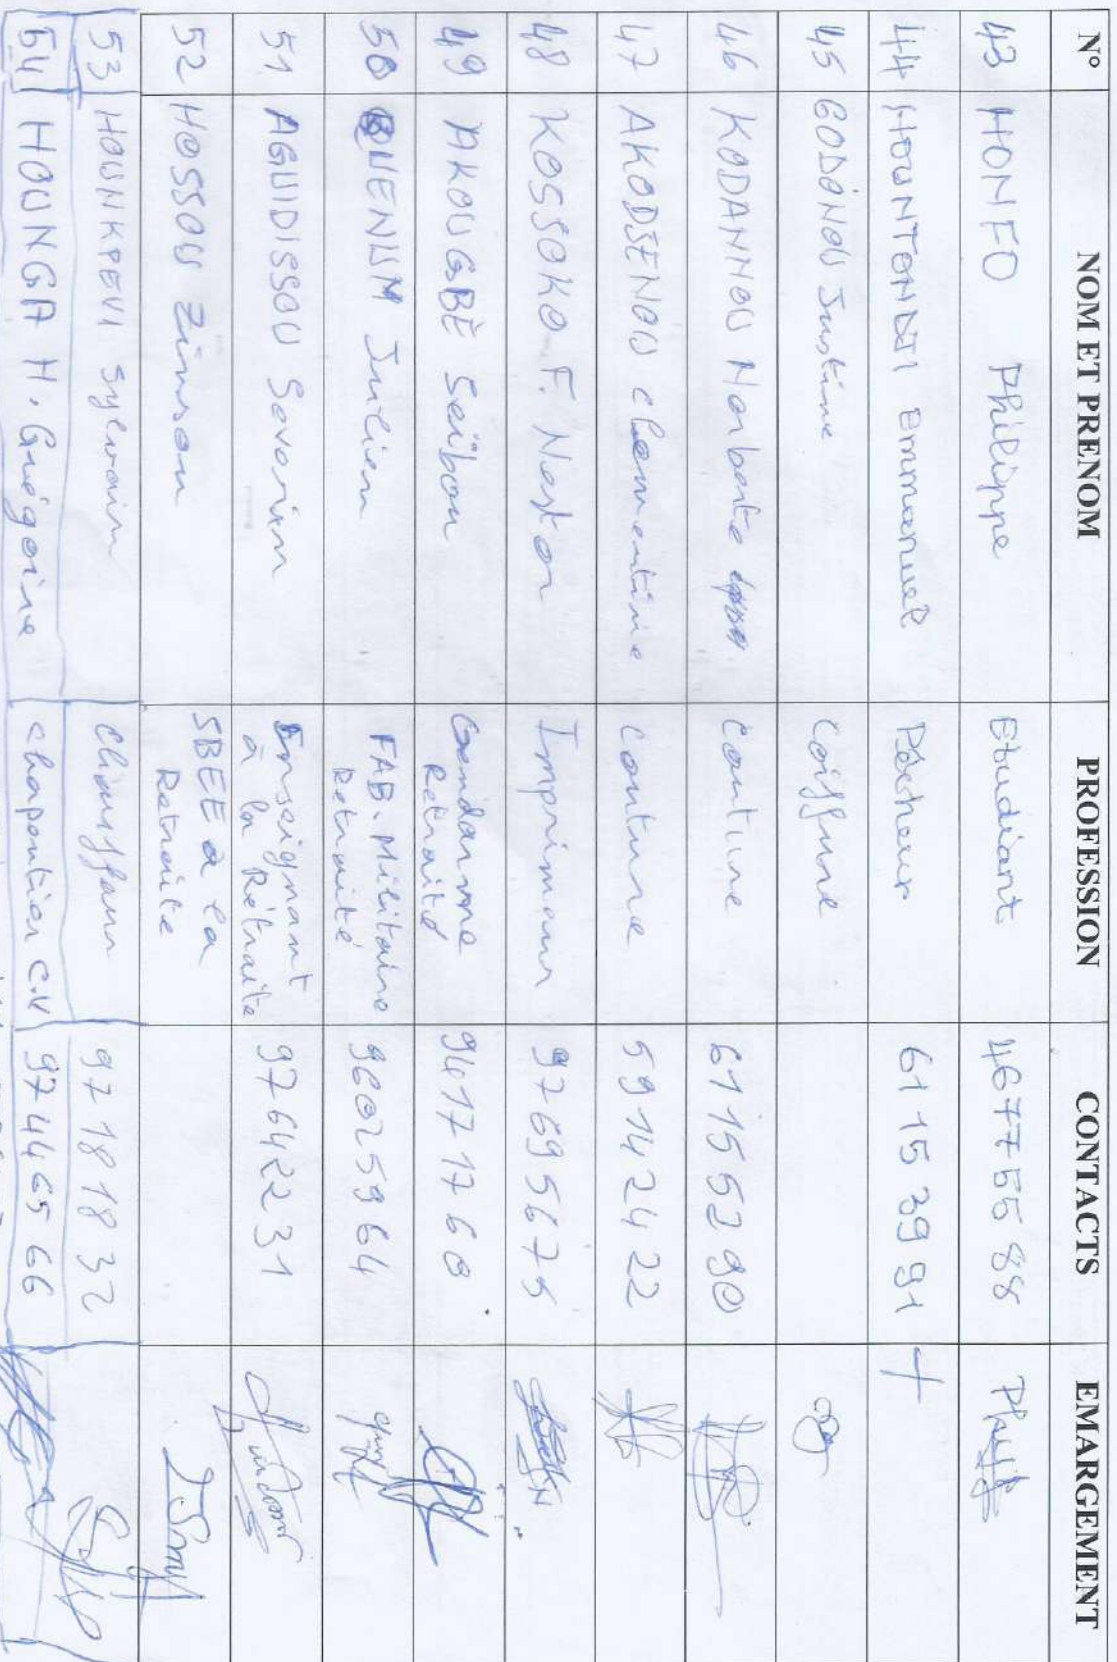 N° NOM ET PRENOM PROFESSION CONTACTS EMARGEMENT
43 HONFO Philippe Etudiant 46775588
44 HOUNTONDJI Emmanuel Pêcheur 61153991
45 GODONOU Justine Coiffure
46 KODANNOU Norbaite couture 61155290
47 AKODJENOU clementine couture 59142422
48 KOSSOKO F. Nestor Imprimeur 97695675
49 AKOUGBÈ Seïbou Gendarme Retraité 94171768
50 QUENUM Julien FAB. Militaire Retraité 96025964
51 AGUIDISSOU Severin Enseignant à la Retraite 97642231
52 HOSSOU Zinsou SBEE à la Retraite
53 HOUNKPEVI Sylvain Chauffeur 97181832
54 HOUNGA H. Grégoire chapentier C.V 97446566